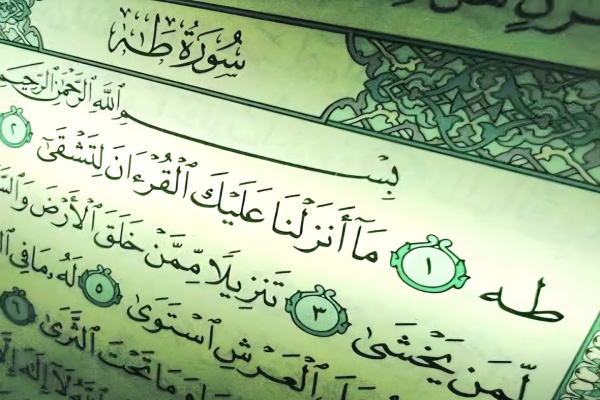 سُورَةُ طه
بِسْمِ ٱللَّهِ ٱلرَّحْمَٰنِ ٱلرَّحِيمِ
طه ١ مَآ أَنزَلْنَا عَلَيْكَ ٱلْقُرْءَانَ لِتَشْقَىٰٓ ٢
لِّمَن يَخْشَىٰ ٣ تَنزِيلًا مِّمَّنْ خَلَقَ ٱلْأَرْضَ
ٱلْعَرْشِ ٱسْتَوَىٰ ٥ لَهُۥ مَا فِى
وَمَا تَحْتَ ٱلثَّرَىٰ ٦
لَآ إِلَٰهَ